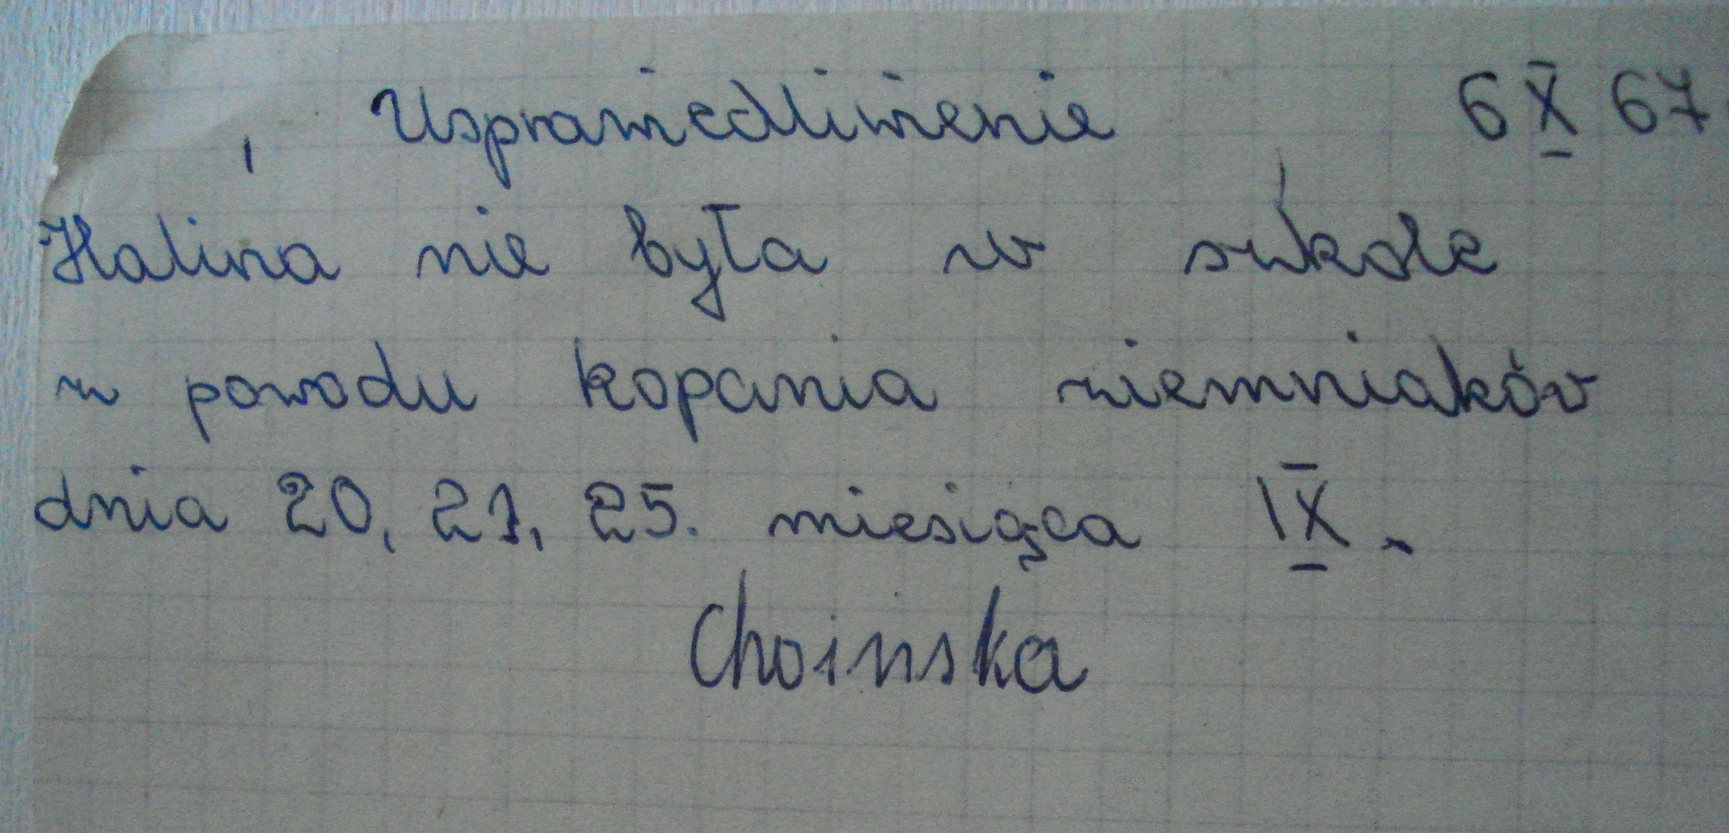 Usprawiedliwienie 6 X 67
Halina nie była w szkole
z powodu kopania ziemniaków
dnia 20, 21, 25. miesiąca IX.
Choinska